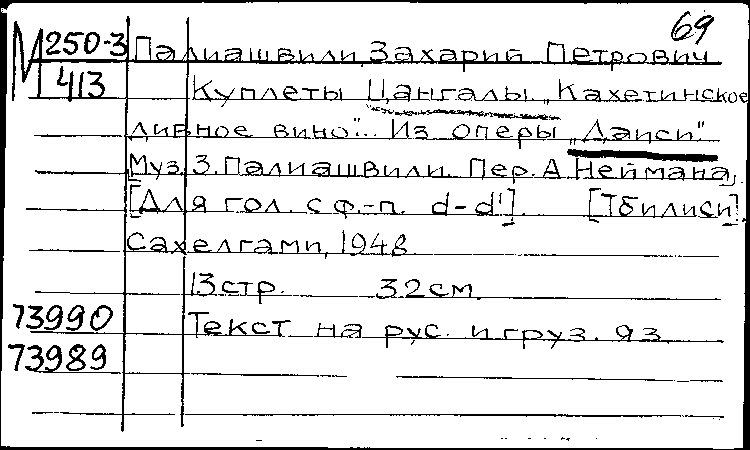 69
М 250-3 Палиашвили, Захарий Петрович
413 Куплеты Цангалы „Кахетинское
дивное вино"... Из оперы „Даиси".
Муз. З. Палиашвили. Пер. А. Неймана,
[Для гол. с ф.-п. d-d¹]. [Тбилиси],
Сахелгами, 1948
13 стр. 32 см.
73990 Текст на рус. и груз. яз.
73989